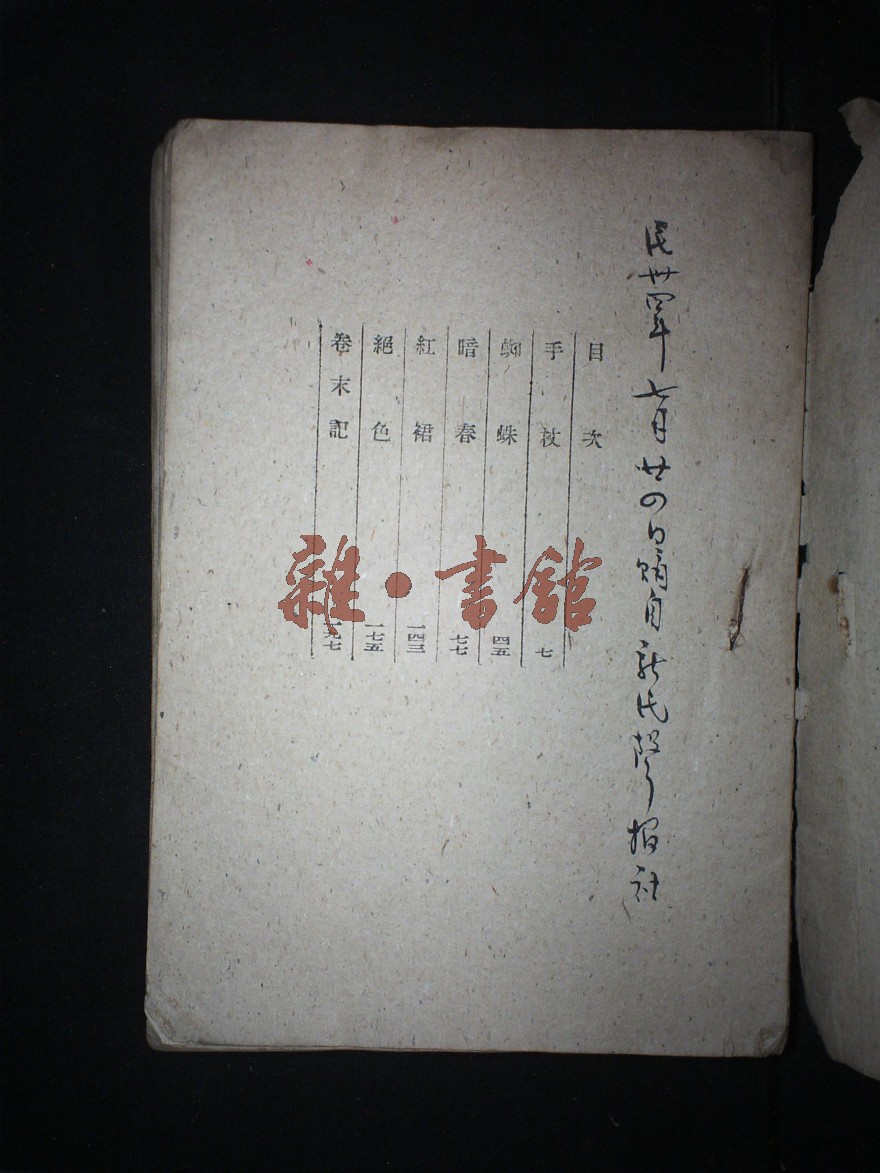 民卅四年七月廿四日購自新民聲報社
目次
手杖 七
蜘蛛 四五
暗春 七七
紅裙 一四三
絕色 一七五
卷末記 一九七
雜·書館